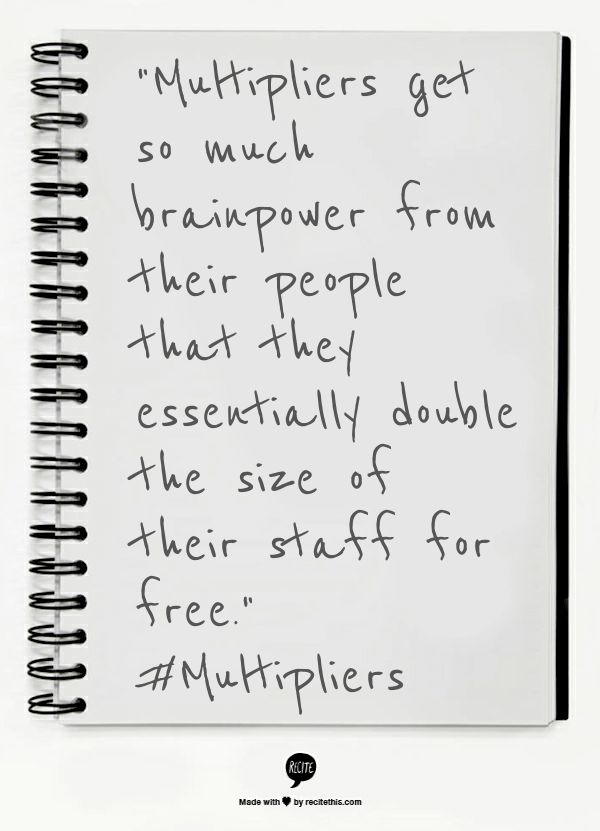 "Multipliers get
so much
brainpower from
their people
that they
essentially double
the size of
their staff for
free."
#Multipliers
RECITE
Made with ♥ by recitethis.com